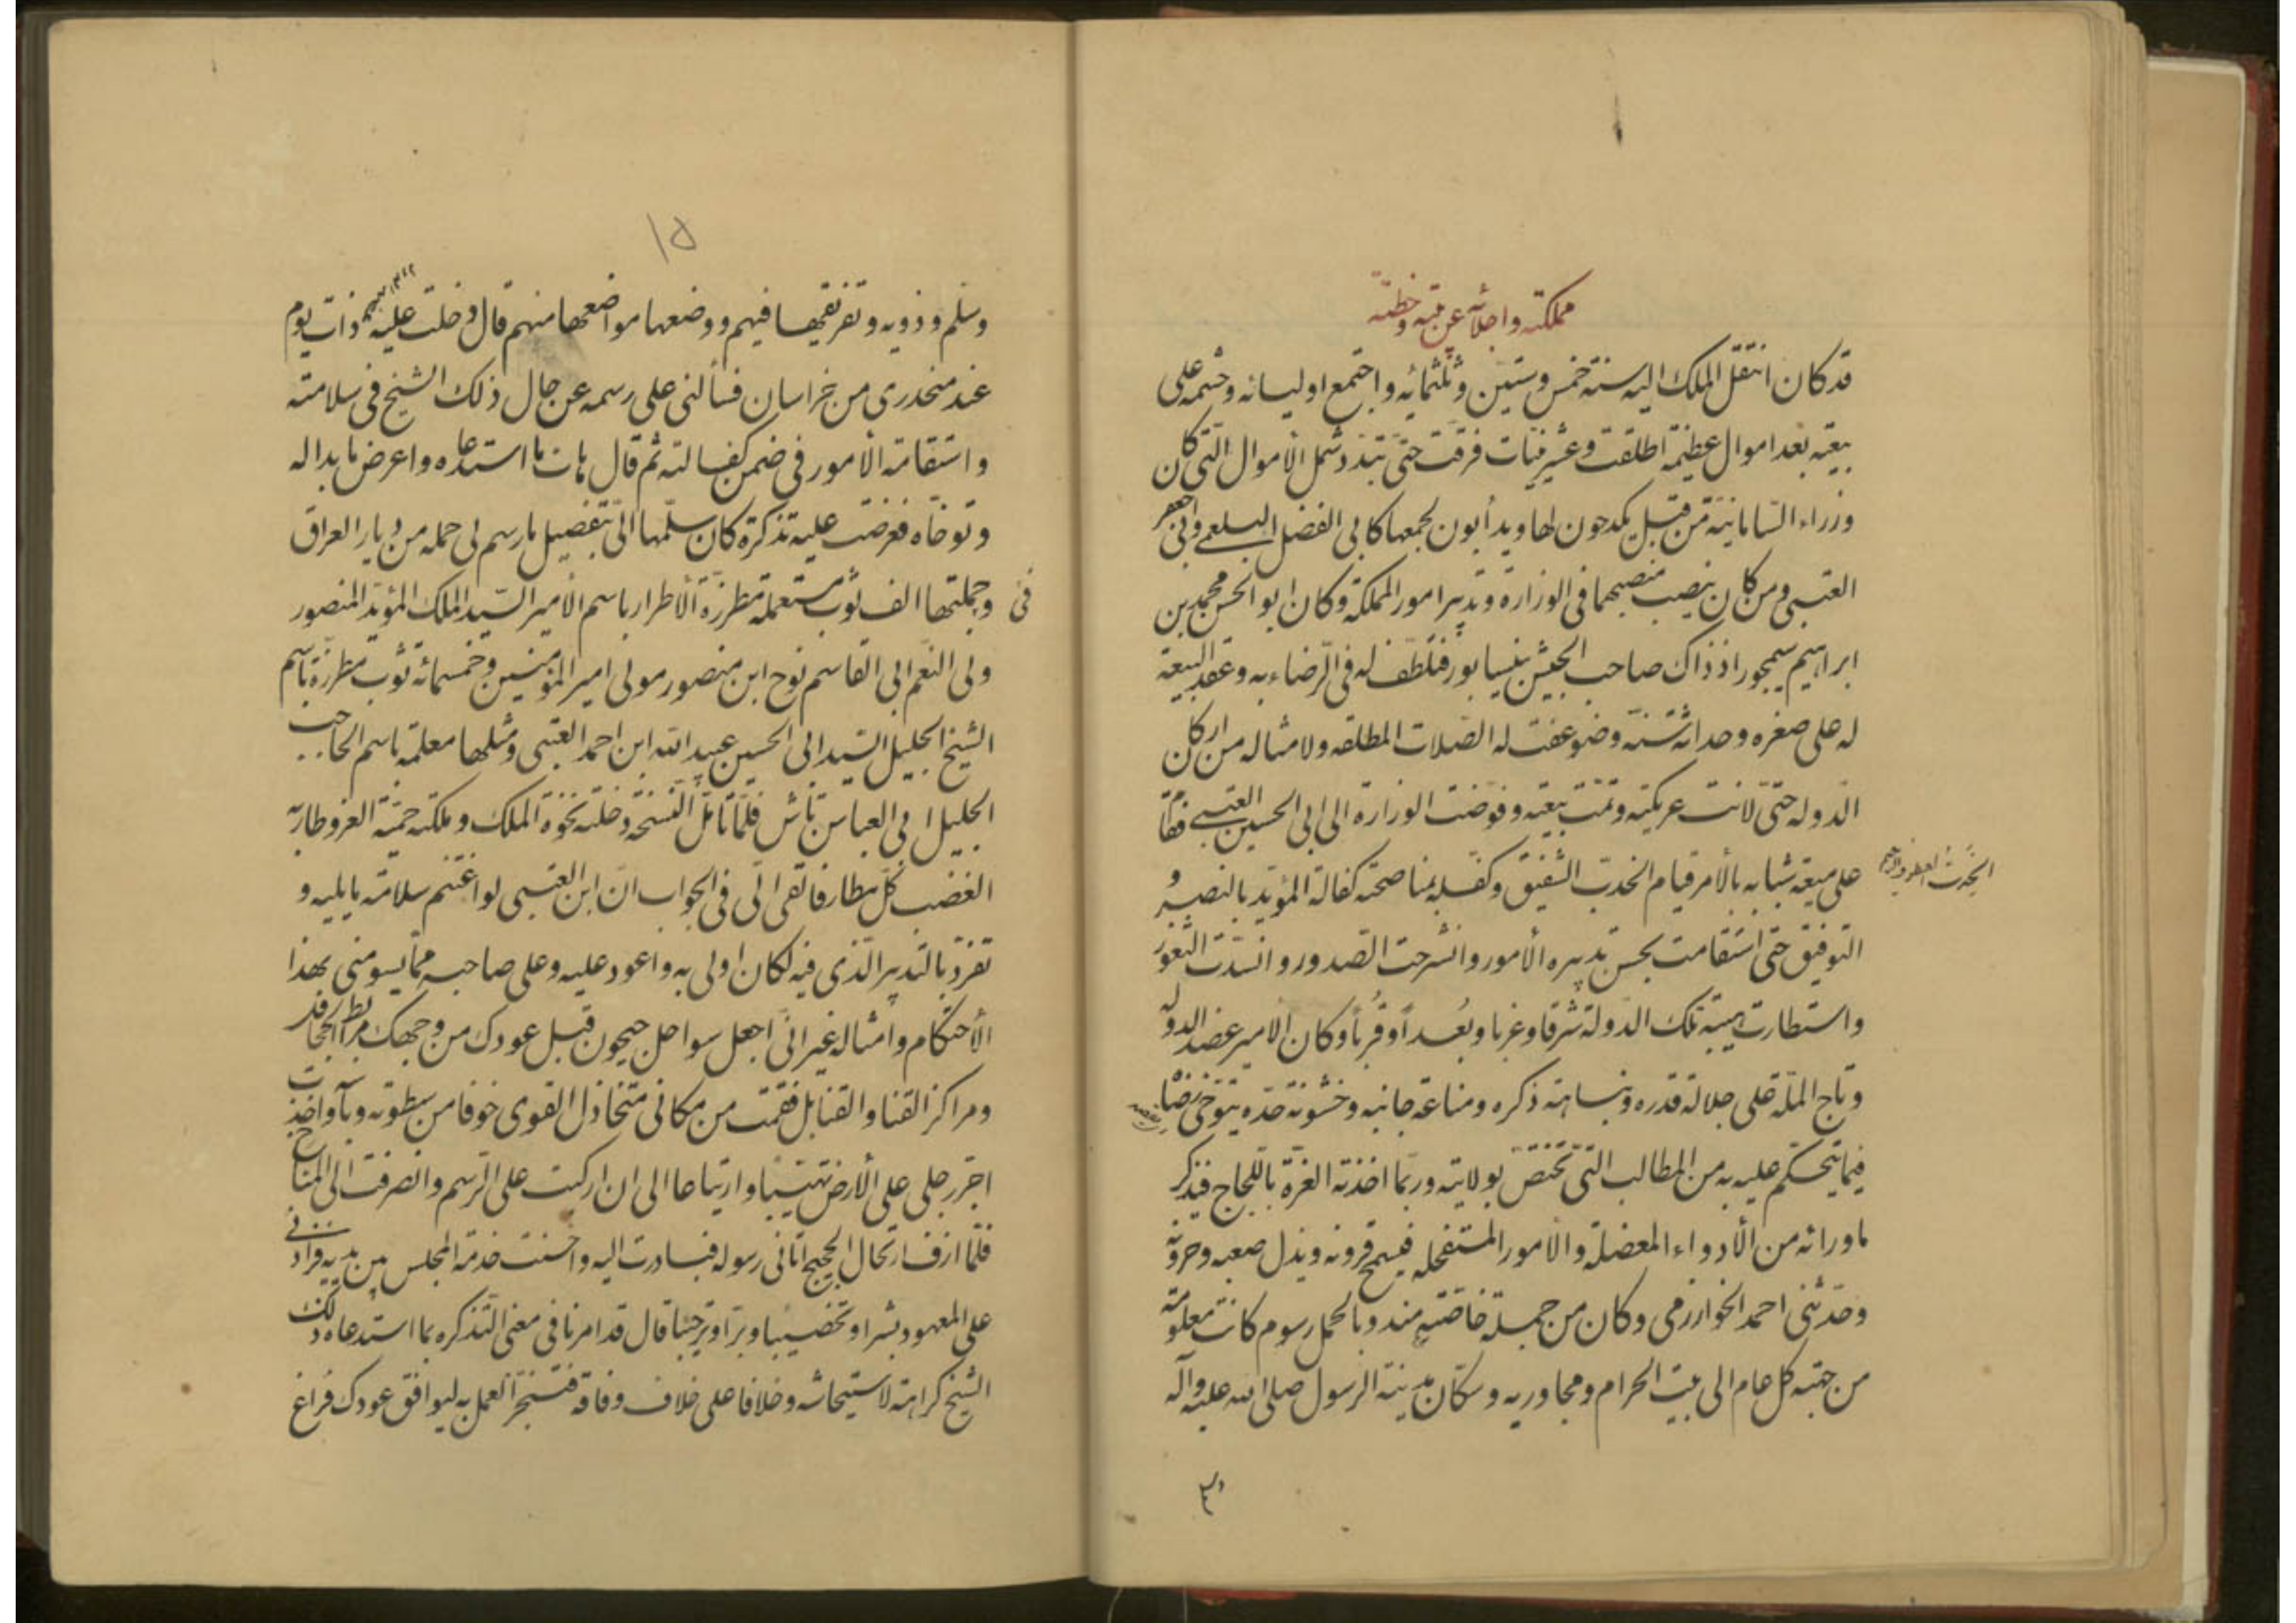 مملكته واجلائه عن بيته وخطته
قد كان انتقل الملك اليه سنة خمس وستين وثلثمائه واجتمع اوليائه وحشمه على
بيعته بعد اموال عظيمة اطلقت وعشرينيات فرقت حتى تبدد شمل الأموال التى كان
وزراء السامانية من قبل يكدحون لها ويدأبون لجمعها كابى الفضل البلعمى وابى جعفر
العتبى ومن كان ينصب منصبهما فى الوزارة وتدبير امور المملكة وكان ابو الحسن محمد بن
ابراهيم سيمجور اذ ذاك صاحب الجيش بنيسابور فتلطف له فى الرضاء به وعقد البيعة
له على صغره وحداثة سنه وضوعفت له الصلات المطلقه ولامثاله من اركان
الدوله حتى لانت عريكته وتمت بيعته وفوضت الوزارة الى ابى الحسين العتبى فقام
على ميعة شبابه بالأمر قيام الحدب الشفيق وكفله بمناصحته كفالة المؤيد بالنصر و
التوفيق حتى استقامت بحسن تدبيره الأمور وانشرحت الصدور وانسدت الثغور
واستطارت هيبة تلك الدولة شرقا وغربا وبُعداً وقُرباً وكان الامير عضد الدوله
وتاج الملة على جلالة قدره ونباهة ذكره ومناعة جانبه وخشونة حده يتوخى رضاه
فيما يتحكم عليه به من المطالب التى تختص بولايته وربما اخذته العزة باللجاج فيذكر
ما ورائه من الأدواء المعضلة والأمور المستفحله فيسمح قرونه ويذل صعبه وحرونه
وحدثنى احمد الخوارزمى وكان من جملة خاصته مندوبا لحمل رسوم كانت معلومة
من جهته كل عام الى بيت الحرام ومجاوريه وسكان مدينة الرسول صلى الله عليه وآله
١٥
وسلم وذويه وتفريقها فيهم ووضعها مواضعها منهم قال دخلت عليه ذات يوم
عند منحدرى من خراسان فسألنى على رسمه عن حال ذلك الشيخ فى سلامته
واستقامة الأمور فى ضمن كفالته ثم قال هات ما استدعاه واعرض ما بدا له
وتوخاه فعرضت عليه تذكرة كان سلمها الى بتفصيل ما رسم لى حمله من ديار العراق
فى وجملتها الف ثوب مستعملة مطرزة الأطرار باسم الأمير السيد الملك المؤيد المنصور
ولى النعم ابى القاسم نوح ابن منصور مولى امير المؤمنين وخمسمائة ثوب مطرزة باسم
الشيخ الجليل السيد ابى الحسين عبيد الله ابن احمد العتبى ومثلها معلمة باسم الحاجب
الجليل ابى العباس تاش فلما تأمل النسخة دخلته نخوة الملك وملكته حمية العز وطار به
الغضب كل مطار فالقى الى فى الجواب ان ابن العتبى لو اغتنم سلامة ما يليه و
تفرد بالتدبير الذى فيه لكان اولى به واعود عليه وعلى صاحبه مما يسومنى بهذا
الأحتكام وامثاله غير انى اجعل سواحل جيحون قبل عودك من وجهك مرابط الجحافل
ومراكز القنا والقنابل فقمت من مكانى متخاذل القوى خوفا من سطوته وبأسه واخذت
اجر رجلى على الأرض تهيبا وارتياعا الى ان اركبت على الرسم وانصرفت الى المناخ
فلما ازف ارتحال الحجيج اتانى رسوله فبادرت اليه واحسنت خدمة المجلس بين يديه فزادنى
على المعهود بشرا وتخصيصا وبرا وترحيبا قال قد امرنا فى معنى التذكره بما استدعاه ذلك
الشيخ كراهة لاستيحاشه وخلافا على خلاف وفاقه فتنجز العمل به ليوافق عودك فراغ